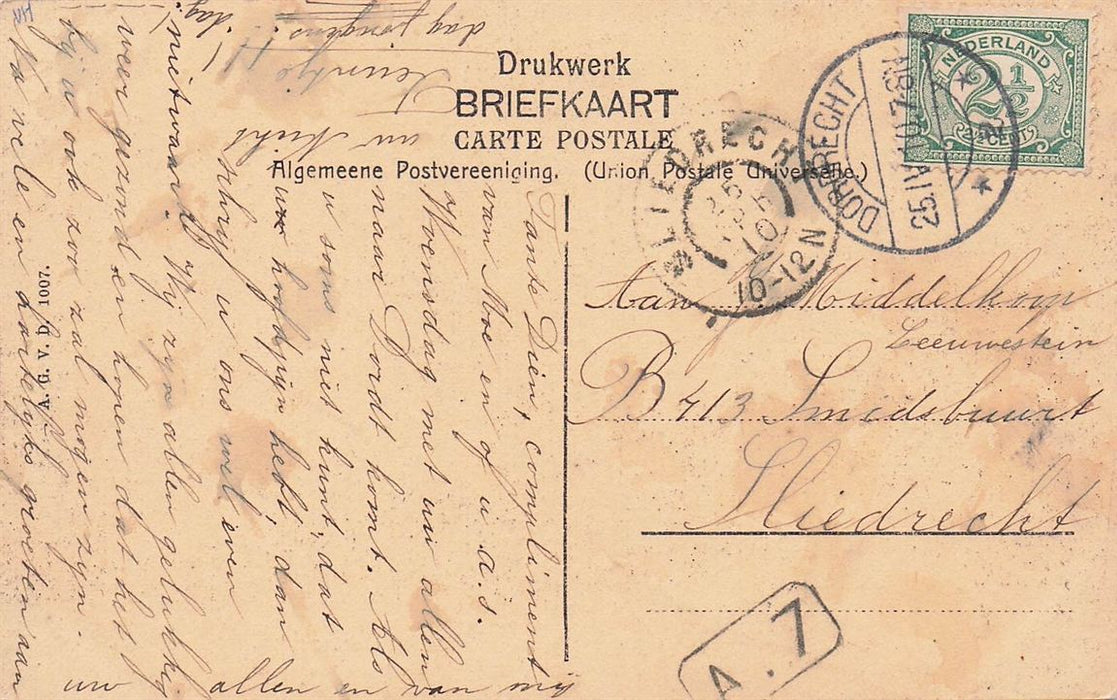 Drukwerk
BRIEFKAART
CARTE POSTALE
Algemeene Postvereeniging. (Union Postale Universelle.)
NEDERLAND
2½
2½ CENT
DORDRECHT
25.IV.10.7-8N
SLIEDRECHT
10-12N
Aan J Middelkoop
Leeuwestein
B 413 Smidsbuurt
Sliedrecht
A.7
A. G. v. D. 1007.
Tante Dien, compliment
van Moe en of u a.s.
Woensdag met uw allen
naar Dordt komt. Als
u soms niet kunt, dat
uw hoofdpijn hebt, dan
schrijf u ons wel even
nietwaar? Wij zijn allen gelukkig
weer gezond en hopen dat het
bij u ook zoo zal mogen zijn.
Na vele en hartelijke groeten aan
uw allen en van mij
uw Nicht
dag jongens!
dag